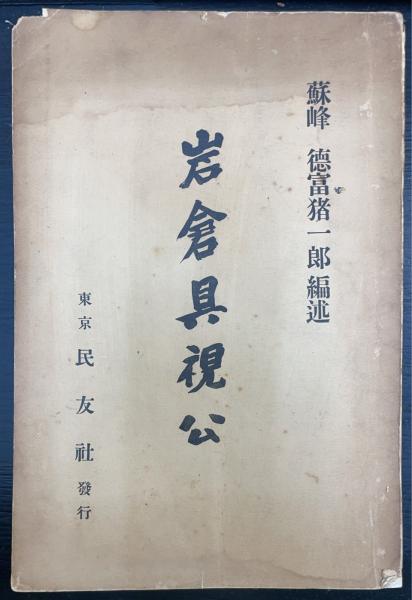 蘇峰 德富猪一郎編述
岩倉具視公
東京 民友社 發行